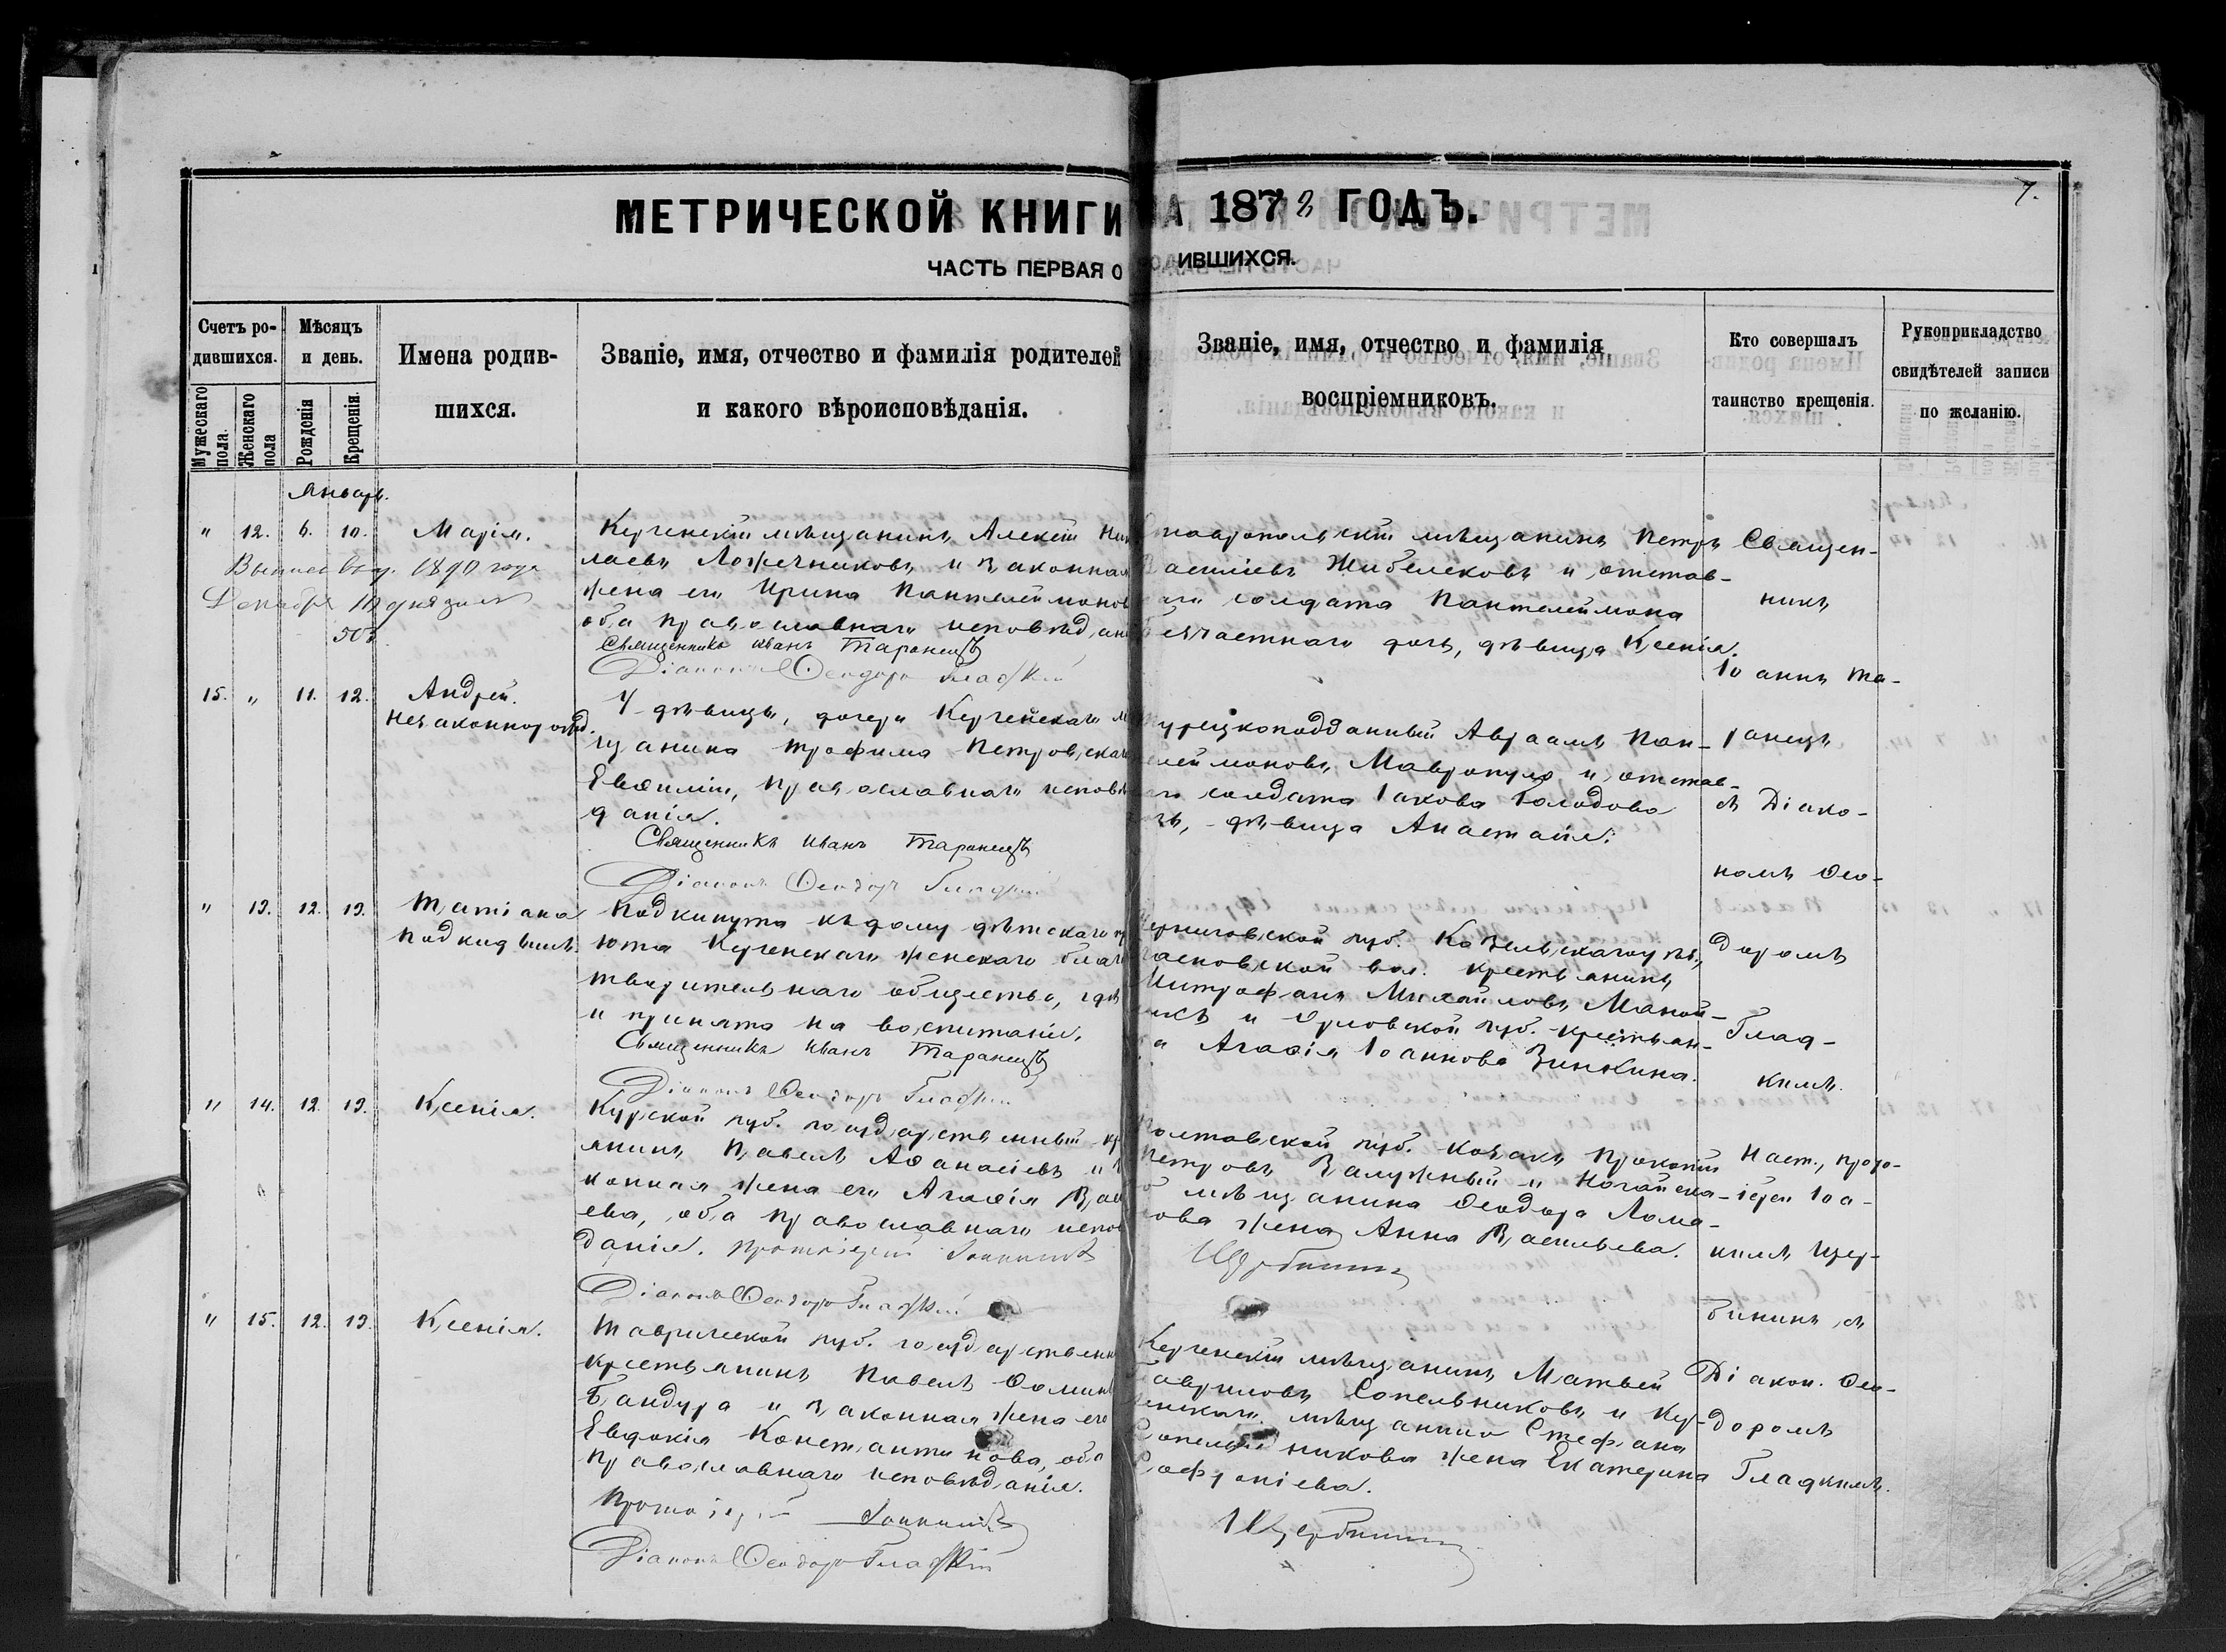 7.
МЕТРИЧЕСКОЙ КНИГИ НА 1872 ГОДЪ.
ЧАСТЬ ПЕРВАЯ О РОДИВШИХСЯ.
Счетъ родившихся.
Мужескаго пола.
Женскаго пола
Мѣсяцъ и день.
Рожденія
Крещенія.
Имена родив-
шихся.
Званіе, имя, отчество и фамилія родителей
и какого вѣроисповѣданія.
Званіе, имя, отчество и фамилія
воспріемниковъ.
Кто совершалъ
таинство крещенія.
Рукоприкладство
свидѣтелей записи
по желанію.
Январь.
" 12. 6. 10. Марія.
1890 года
Декабря
Керченскій мѣщанинъ Алексѣй Ник
лаевъ Ложечниковъ и законная
жена его Ирина Пантелеймонов
оба православнаго исповѣдан
Священникъ Иванъ Таранецъ
Діаконъ Ѳеодоръ Гладкій
тавропольскій мѣщанинъ Петръ
Василіевъ Жибелековъ и отстав-
наго солдата Пантелеймона
Безчастнаго дочь, дѣвица Ксенія.
Священ-
никъ
Іоаннъ Та-
ранецъ
съ Діако-
номъ Ѳео-
доромъ
Глад-
кимъ.
15. " 11. 12. Андрей.
Незаконнорожд.
У дѣвицы, дочери Керченскаго м
щанина Трофима Петровскаго
Евѳиміи, православнаго исповѣ
данія.
Священникъ Иванъ Таранецъ
Діаконъ Ѳеодоръ Гладкій
турецкоподданный Авраамъ Пан-
телеймоновъ Мавропуло и отстав-
го солдата Іакова Голодова
чь, - дѣвица Анастасія.
" 13. 12. 13. Татіана
Подкидышъ.
Подкинута къ дому дѣтскаго пр
юта Керченскаго женскаго благо
творительнаго общества, гдѣ
и принята на воспитаніе.
Священникъ Иванъ Таранецъ
Діаконъ Ѳеодоръ Гладкій
Черниговской губ. Козельскаго уѣз.,
вол. крестьянинъ
Митрофанъ Михайловъ
и Орловской губ. крестьян-
ка Агаѳія Іоаннова Зинкина.
" 14. 12. 13. Ксенія.
Курской губ. государственный кр
янинъ Павелъ Аѳанасіевъ и з
конная жена его Агаѳія Васи
ева, оба православнаго испов
данія. Протоіерей Іоанникій
Діаконъ Ѳеодоръ Гладкій
Полтавской губ. козакъ Прокопій
Петровъ Залужный и Ногайска-
о мѣщанина Ѳеодора Лома-
ова жена Анна Васильева.
Щербинин
Наст., прото-
іерей Іоа-
никій Щер-
бининъ съ
Діакон. Ѳео-
доромъ
Гладкимъ.
" 15. 12. 13. Ксенія.
Таврической губ. государственн
крестьянинъ Павелъ Ѳомин
Бандура и законная жена его
Евдокія Константинова, оба
православнаго исповѣданія.
Протоіерей Іоанникій
Діаконъ Ѳеодоръ Гладкій
Керченскій мѣщанинъ Матвѣй
Гавриловъ Сопельниковъ и Кер-
ченскаго мѣщанина Стефана
Сопельникова жена Екатерина
Софроніева.
Щербинин